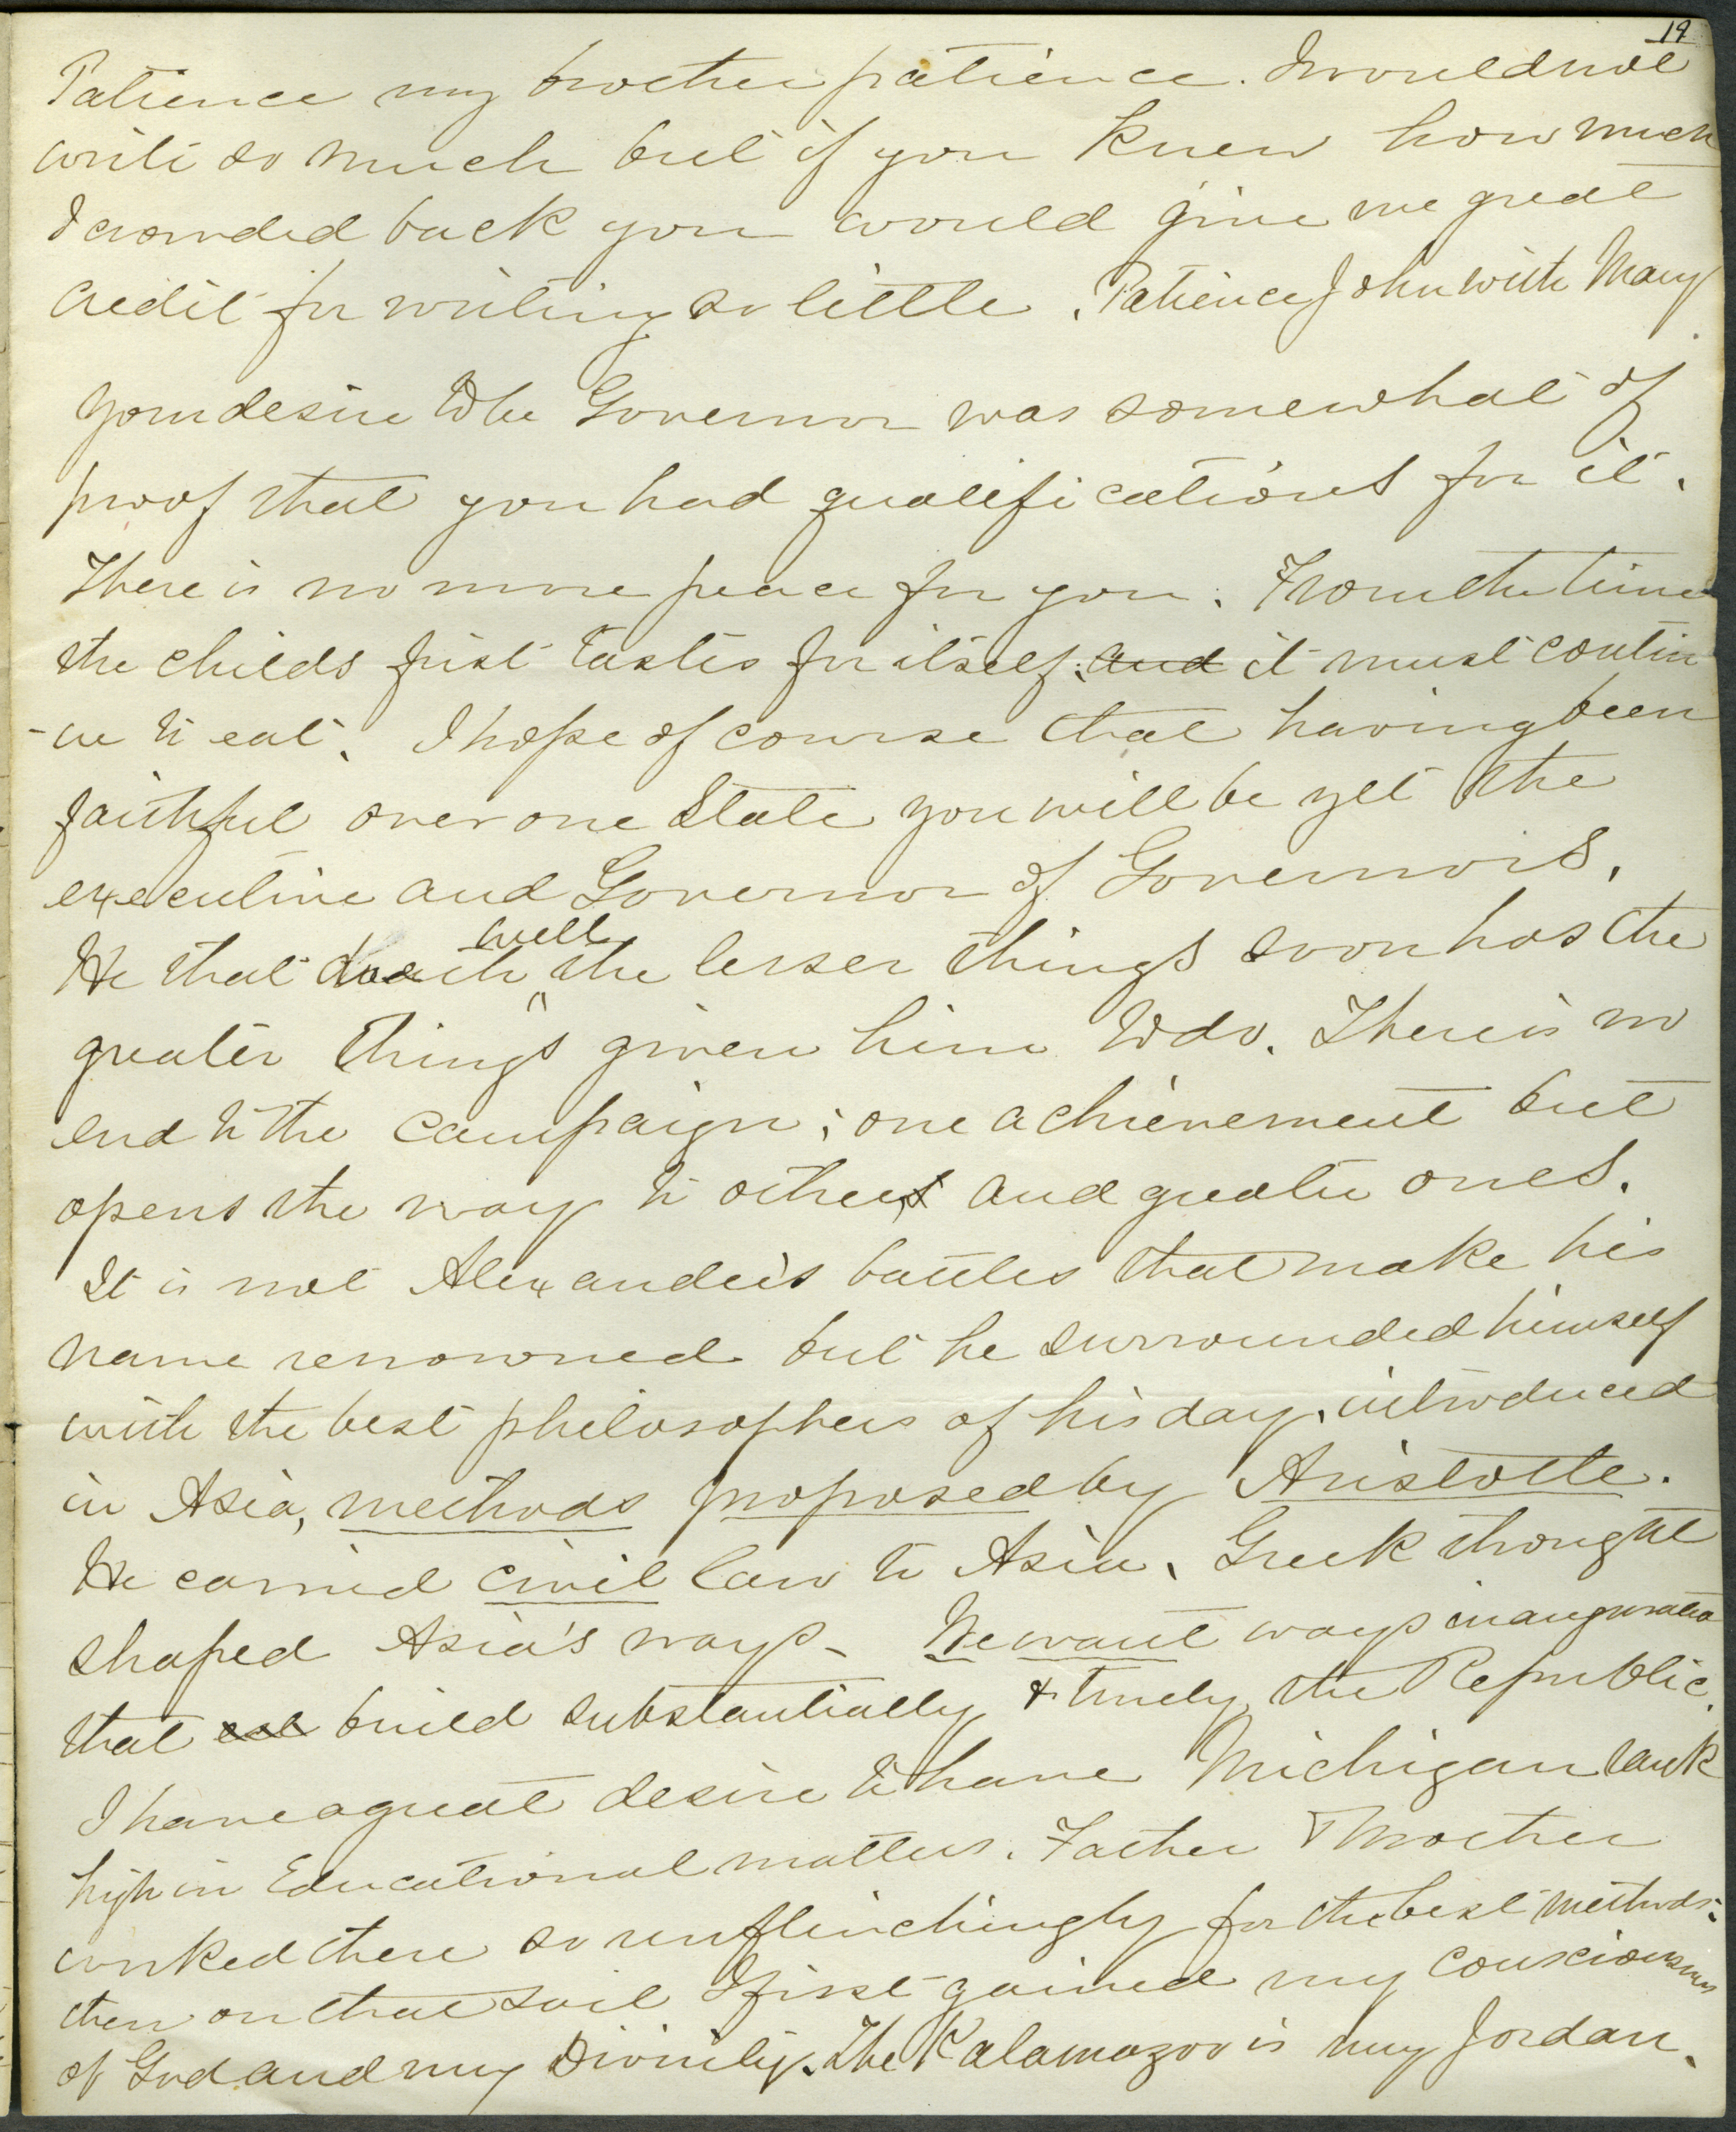 19
Patience my brother patience. I would not
write so much but if you knew how much
I crowded back you would give me great
credit for writing so little. Patience John with Mary
Your desire to be Governor was somewhat of
proof that you had qualifications for it.
There is no more peace for you. From the time
the childs first tastes for itself, and it must contin
-ue to eat. I hope of course that having been
faithful over one State you will be yet the
executive and Governor of Governors.
He that doeth well the lesser things soon has the
greater things given him to do. There is no
end to the campaign; one achievement but
opens the way to others and greater ones.
It is not Alexander's battles that make his
name renowned but he surrounded himself
with the best philosophers of his day, introduced
in Asia, methods proposed by Aristotle.
He carried civil law to Asia, Greek thought
shaped Asia's ways - We want ways inaugurated
that build substantially & truely the Republic.
I have a great desire to have Michigan rank
high in Educational matters. Father & Mother
worked there so unflinchingly for the best methods:
then on that soil I first gained my consciousness
of God and my Divinity. The Kalamazoo is my Jordan.